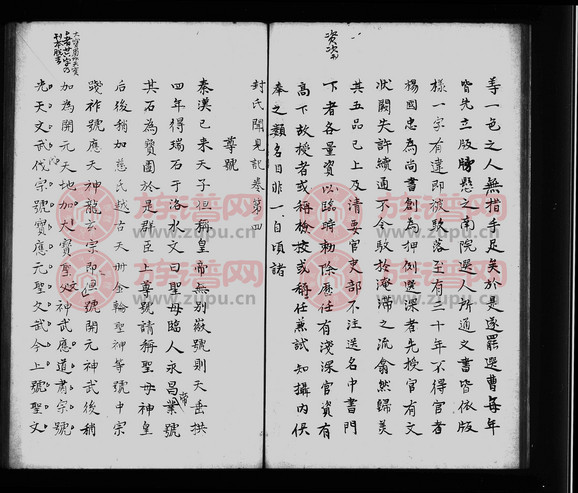 資次可
等一色之人無措手足矣於是遂罷選曹每年
皆先立版牓懸之南院選人所通文書皆依版
樣一字有違即被駮落至有三十年不得官者
楊國忠為尚書創為押例選深者先授官有文
狀闕失許續通不令駮於淹滯之流翕然歸美
其五品已上及清要官吏部不注送名中書門
下者各量資以臨時勅除歷任有淺深官資有
高下故授者或稱檢校或稱任兼試知攝內供
奉之類名目非一自頃諸
封氏聞見記卷第四
尊號
秦漢已來天子但稱皇帝無別徽號則天垂拱
四年得瑞石于洛水文曰聖母臨人永昌業號
帝
其石為寶圖於是群臣上尊號請稱聖母神皇
后後稍加慈氏越古天冊金輪聖神等號中宗
踐祚號應天神龍玄宗即位號開元神武後稍
加為開元天地加大寶聖文神武應道肅宗號
光天文武代宗號寶應元聖文武今上號聖文
族谱网
www.zupu.cn
族谱网
www.zupu.cn
族谱网
www.zupu.cn
族谱网
www.zupu.cn